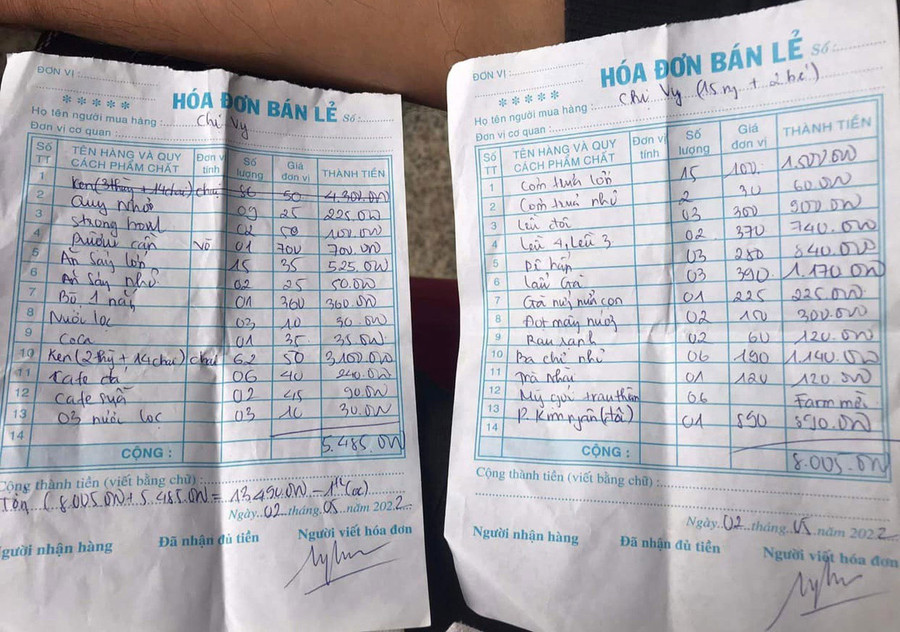 ĐƠN VỊ :
*****
HÓA ĐƠN BÁN LẺ Số :
Họ tên người mua hàng : Chị Vy
Đơn vị cơ quan :
Số TT TÊN HÀNG VÀ QUY CÁCH PHẨM CHẤT Đơn vị tính Số lượng Giá đơn vị THÀNH TIỀN
1 Ken (3 thùng + 14 chai) chai 86 50 4.300.000
2 Quy Nhơn 09 25 225.000
3 Strong bowl 02 50 100.000
4 Rượu cần vò 01 700 700.000
5 Ăn sáng lớn 15 35 525.000
6 Ăn sáng nhỏ 02 25 50.000
7 Bò 1 nắng 01 360 360.000
8 Nước lọc 03 10 30.000
9 Coca 01 35 35.000
10 Ken (2 thg + 14 chai) chai 62 50 3.100.000
11 Cafe đá 06 40 240.000
12 Cafe sữa 02 45 90.000
13 03 nước lọc 03 10 30.000
14
CỘNG : 5.485.000
Cộng thành tiền (viết bằng chữ) :
(8.005.000 + 5.485.000 = 13.490.000 - 1tr (cọc)
Ngày 02 tháng 05 năm 2022
Người nhận hàng Đã nhận đủ tiền Người viết hóa đơn
ĐƠN VỊ :
*****
HÓA ĐƠN BÁN LẺ Số :
Họ tên người mua hàng : Chị Vy (15 ng + 2 bé)
Đơn vị cơ quan :
Số TT TÊN HÀNG VÀ QUY CÁCH PHẨM CHẤT Đơn vị tính Số lượng Giá đơn vị THÀNH TIỀN
1 Cơm trưa lớn 15 100 1.500.000
2 Cơm trưa nhỏ 2 30 60.000
3 Lều đôi 03 300 900.000
4 Lều 4, Lều 3 02 370 740.000
5 Dê hấp 03 280 840.000
6 Lẩu Gà 03 390 1.170.000
7 Gà nướng nửa con 01 225 225.000
8 Đọt mây nướng 02 150 300.000
9 Rau xanh 02 60 120.000
10 Ba chỉ nhỏ 06 190 1.140.000
11 Trà Nhài 01 120 120.000
12 Mỳ gói 06 Farm mời
13 P. Kim ngân (tối) 01 890 890.000
14
CỘNG : 8.005.000
Cộng thành tiền (viết bằng chữ) :
Ngày 02 tháng 05 năm 2022
Người nhận hàng Đã nhận đủ tiền Người viết hóa đơn